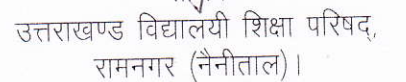 उत्तराखण्ड विद्यालयी शिक्षा परिषद्,
रामनगर (नैनीताल) ।